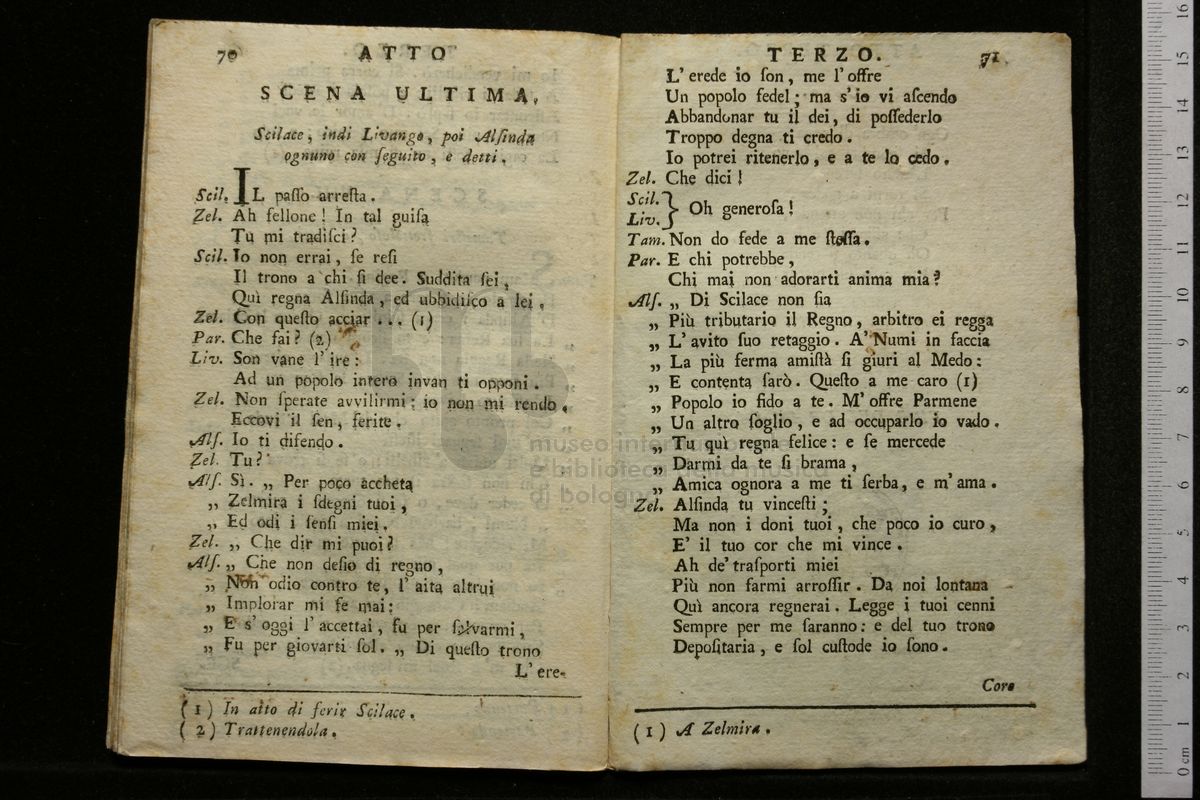 70 ATTO
SCENA ULTIMA.
Scilace, indi Livango, poi Alſinda
ognuno con ſeguito, e detti.
Scil. IL paſſo arreſta.
Zel. Ah fellone! In tal guiſa
Tu mi tradiſci?
Scil. Io non errai, ſe reſi
Il trono a chi ſi dee. Suddita ſei,
Quì regna Alſinda, ed ubbidiſco a lei.
Zel. Con queſto acciar ... (1)
Par. Che fai? (2)
Liv. Son vane l'ire:
Ad un popolo intero invan ti opponi.
Zel. Non ſperate avvilirmi; io non mi rendo.
Eccovi il ſen, ferite.
Alſ. Io ti difendo.
Zel. Tu?
Alſ. Sì. „ Per poco accheta
„ Zelmira i ſdegni tuoi,
„ Ed odi i ſenſi miei.
Zel. „ Che dir mi puoi?
Alſ. „ Che non deſio di regno,
„ Non odio contro te, l'aita altrui
„ Implorar mi fe mai:
„ E s'oggi l'accettai, fu per ſalvarmi,
„ Fu per giovarti ſol. „ Di queſto trono
L'ere-
(1) In atto di ferir Scilace.
(2) Trattenendola.
TERZO. 71
L'erede io ſon, me l'offre
Un popolo fedel; ma s'io vi aſcendo
Abbandonar tu il dei, di poſſederlo
Troppo degna ti credo.
Io potrei ritenerlo, e a te lo cedo.
Zel. Che dici!
Scil.
Liv. } Oh generoſa!
Tam. Non do fede a me ſteſſa.
Par. E chi potrebbe,
Chi mai non adorarti anima mia?
Alſ. „ Di Scilace non ſia
„ Più tributario il Regno, arbitro ei regga
„ L'avito ſuo retaggio. A' Numi in faccia
„ La più ferma amiſtà ſi giuri al Medo:
„ E contenta ſarò. Queſto a me caro (1)
„ Popolo io fido a te. M'offre Parmene
„ Un altro ſoglio, e ad occuparlo io vado.
„ Tu quì regna felice: e ſe mercede
„ Darmi da te ſi brama,
„ Amica ognora a me ti ſerba, e m'ama.
Zel. Alſinda tu vinceſti;
Ma non i doni tuoi, che poco io curo,
E' il tuo cor che mi vince.
Ah de' traſporti miei
Più non farmi arroſſir. Da noi lontana
Quì ancora regnerai. Legge i tuoi cenni
Sempre per me ſaranno: e del tuo trono
Depoſitaria, e ſol cuſtode io ſono.
Coro
(1) A Zelmira.
museo internazionale
e biblioteca della musica
di bologna
0 cm 1 2 3 4 5 6 7 8 9 10 11 12 13 14 15 16